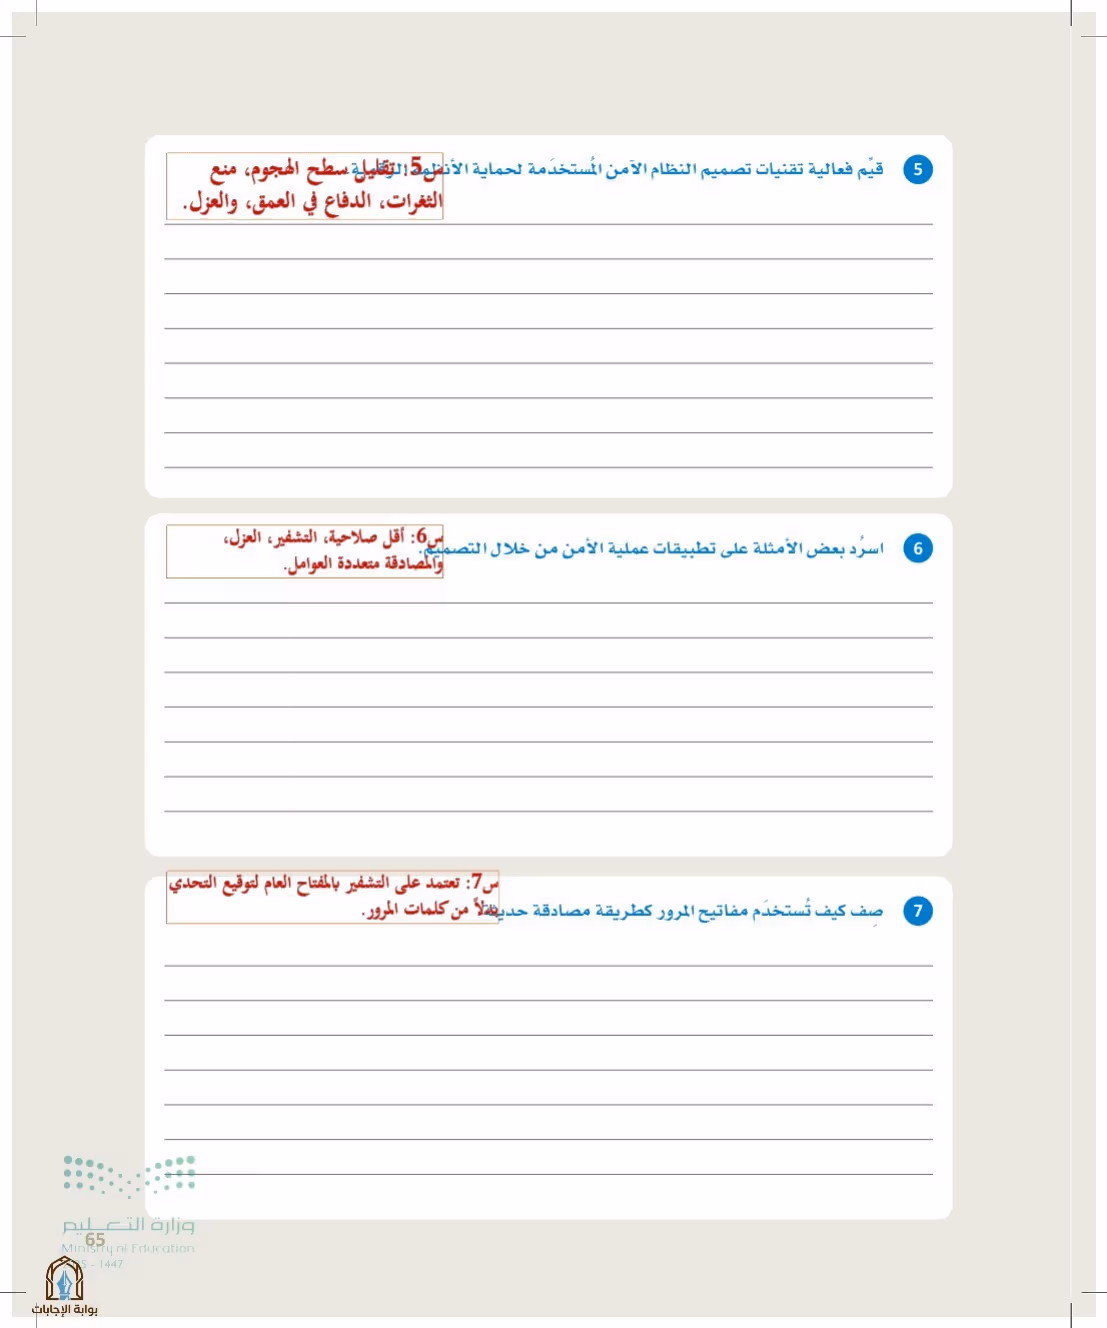 5 قيِّم فعالية تقنيات تصميم النظام الآمن المُستخدَمة لحماية الأنظمة الرقمية.
س5: تقليل سطح الهجوم، منع
الثغرات، الدفاع في العمق، والعزل.
6 اسرُد بعض الأمثلة على تطبيقات عملية الأمن من خلال التصميم.
س6: أقل صلاحية، التشفير، العزل،
والمصادقة متعددة العوامل.
س7: تعتمد على التشفير بالمفتاح العام لتوقيع التحدي
بدلاً من كلمات المرور.
7 صِف كيف تُستخدَم مفاتيح المرور كطريقة مصادقة حديثة.
وزارة التعليم
65
Ministry of Education
- 1447
بوابة الإجابات